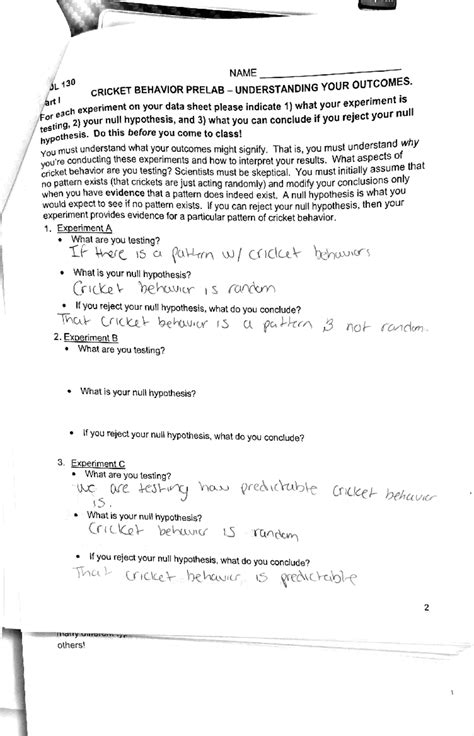 NAME
OL 130
CRICKET BEHAVIOR PRELAB – UNDERSTANDING YOUR OUTCOMES.
art I
For each experiment on your data sheet please indicate 1) what your experiment is
testing, 2) your null hypothesis, and 3) what you can conclude if you reject your null
hypothesis. Do this before you come to class!
You must understand what your outcomes might signify. That is, you must understand why
you're conducting these experiments and how to interpret your results. What aspects of
cricket behavior are you testing? Scientists must be skeptical. You must initially assume that
no pattern exists (that crickets are just acting randomly) and modify your conclusions only
when you have evidence that a pattern does indeed exist. A null hypothesis is what you
would expect to see if no pattern exists. If you can reject your null hypothesis, then your
experiment provides evidence for a particular pattern of cricket behavior.
1. Experiment A
• What are you testing?
If there is a pattern w/ cricket behaviors
• What is your null hypothesis?
Cricket behavior is random
• If you reject your null hypothesis, what do you conclude?
That cricket behavior is a pattern & not random.
2. Experiment B
• What are you testing?
• What is your null hypothesis?
• If you reject your null hypothesis, what do you conclude?
3. Experiment C
• What are you testing?
we are testing how predictable cricket behavior
is.
• What is your null hypothesis?
Cricket behavior is random
• If you reject your null hypothesis, what do you conclude?
That cricket behavior is predictable
2
others!
1